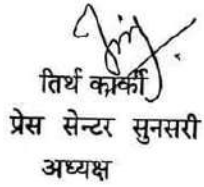 तिर्थ कार्की
प्रेस सेन्टर सुनसरी
अध्यक्ष